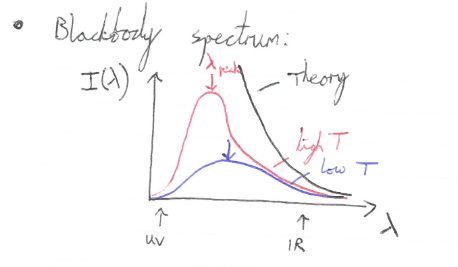 • Blackbody spectrum:
λpeak
I(λ)
Theory
high T
low T
λ
UV
IR